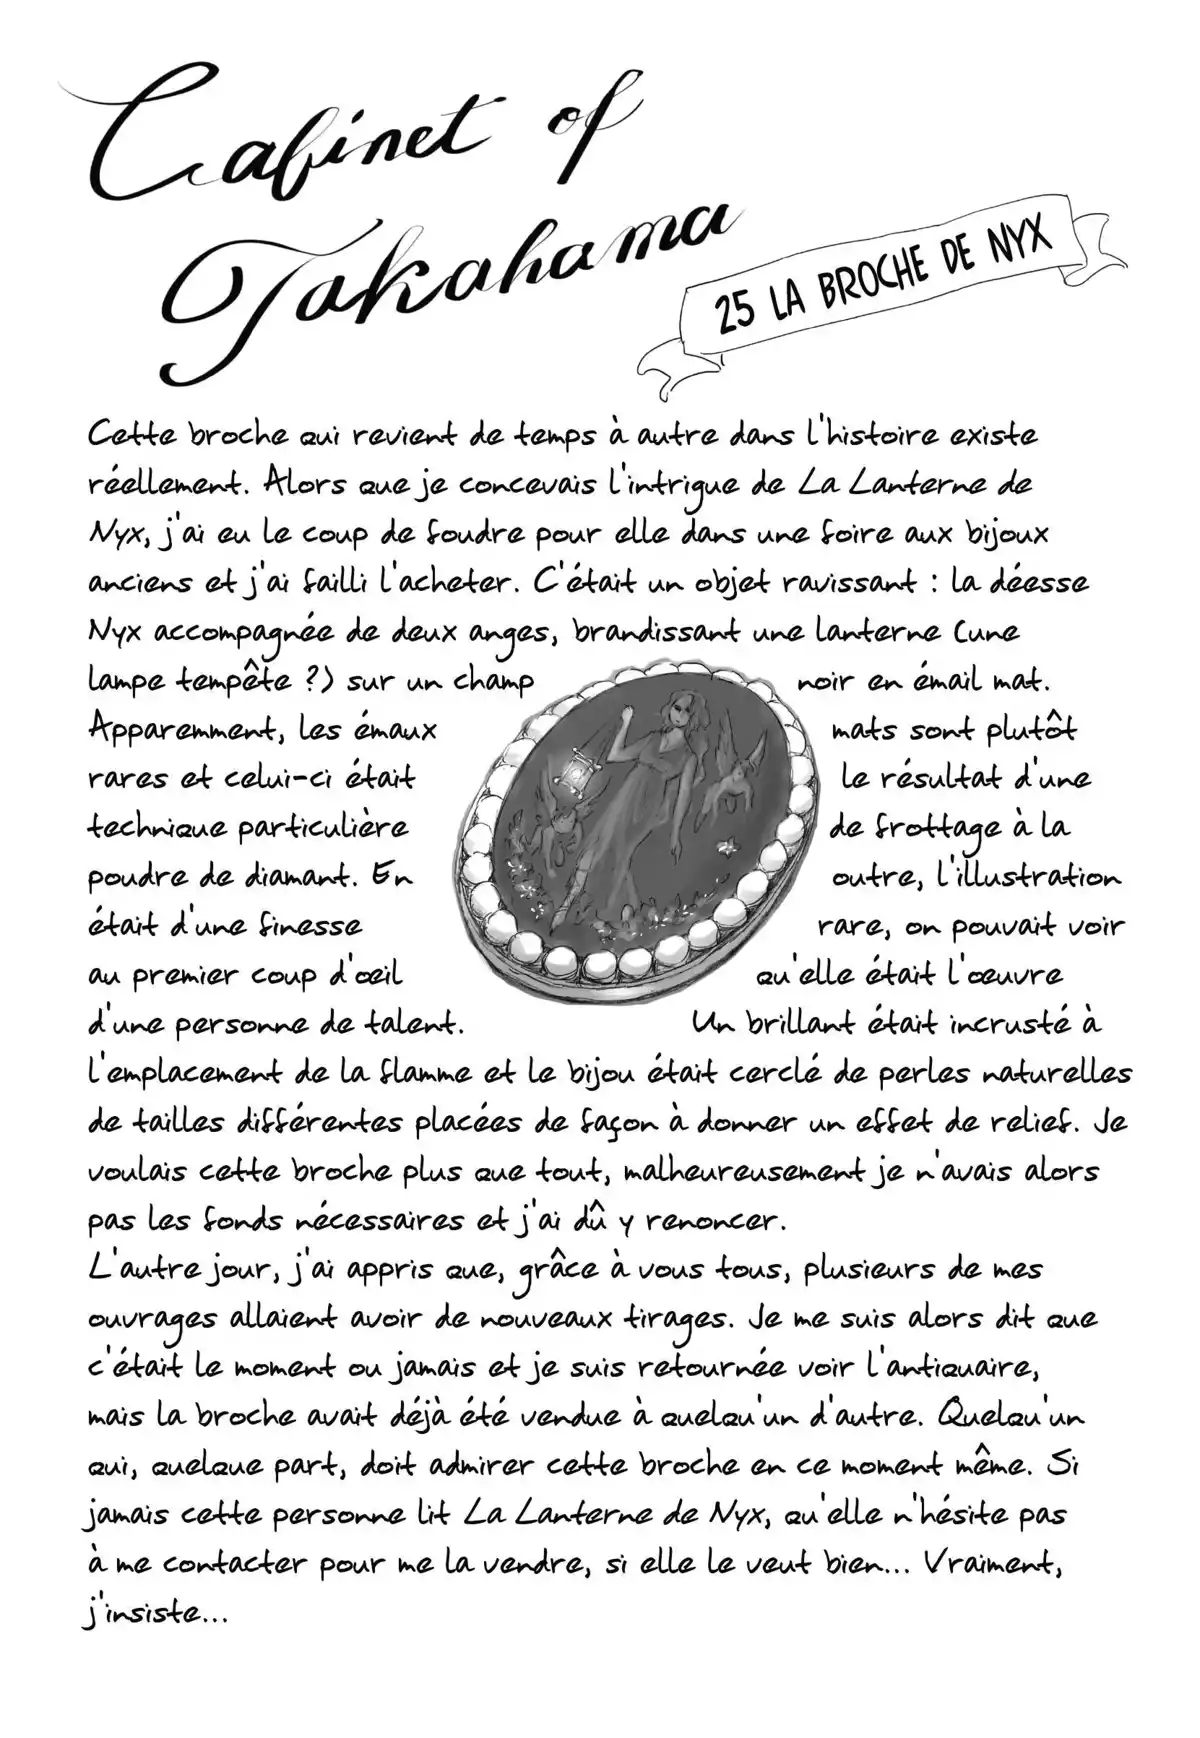 Cabinet of
Takahama
25 LA BROCHE DE NYX
Cette broche qui revient de temps à autre dans l'histoire existe
réellement. Alors que je concevais l'intrigue de La Lanterne de
Nyx, j'ai eu le coup de foudre pour elle dans une foire aux bijoux
anciens et j'ai failli l'acheter. C'était un objet ravissant : la déesse
Nyx accompagnée de deux anges, brandissant une lanterne (une
lampe tempête ?) sur un champ noir en émail mat.
Apparemment, les émaux mats sont plutôt
rares et celui-ci était le résultat d'une
technique particulière de frottage à la
poudre de diamant. En outre, l'illustration
était d'une finesse rare, on pouvait voir
au premier coup d'œil qu'elle était l'œuvre
d'une personne de talent. Un brillant était incrusté à
l'emplacement de la flamme et le bijou était cerclé de perles naturelles
de tailles différentes placées de façon à donner un effet de relief. Je
voulais cette broche plus que tout, malheureusement je n'avais alors
pas les fonds nécessaires et j'ai dû y renoncer.
L'autre jour, j'ai appris que, grâce à vous tous, plusieurs de mes
ouvrages allaient avoir de nouveaux tirages. Je me suis alors dit que
c'était le moment ou jamais et je suis retournée voir l'antiquaire,
mais la broche avait déjà été vendue à quelqu'un d'autre. Quelqu'un
qui, quelque part, doit admirer cette broche en ce moment même. Si
jamais cette personne lit La Lanterne de Nyx, qu'elle n'hésite pas
à me contacter pour me la vendre, si elle le veut bien... Vraiment,
j'insiste...